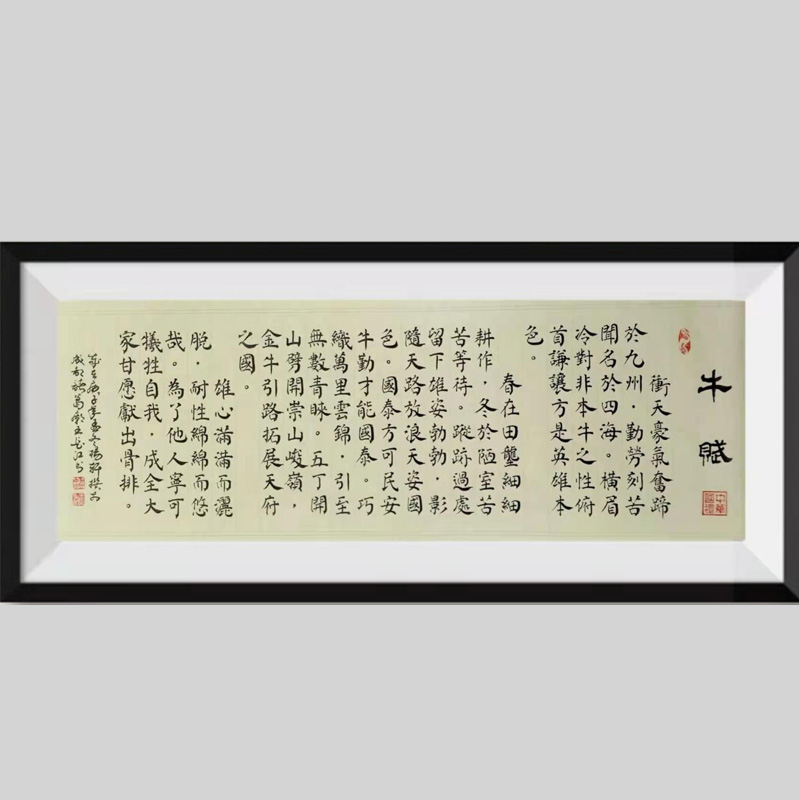 牛賦
衝天豪氣奮蹄
於九州·勤勞刻苦
聞名於四海。橫眉
冷對非本牛之性俯
首謙讓方是英雄本
色。
春在田壟細細
耕作，冬於陋室苦
苦等待。蹤跡過處
留下雄姿勃勃·影
隨天路放浪天姿國
色。國泰方可民安
牛勤才能國泰。巧
織萬里雲錦·引至
無數青睞。五丁開
山劈開崇山峻嶺，
金牛引路拓展天府
之國。
雄心滿滿而灑
脫·耐性綿綿而悠
哉。為了他人寧可
犠牲自我，成全大
家甘愿獻出骨排。